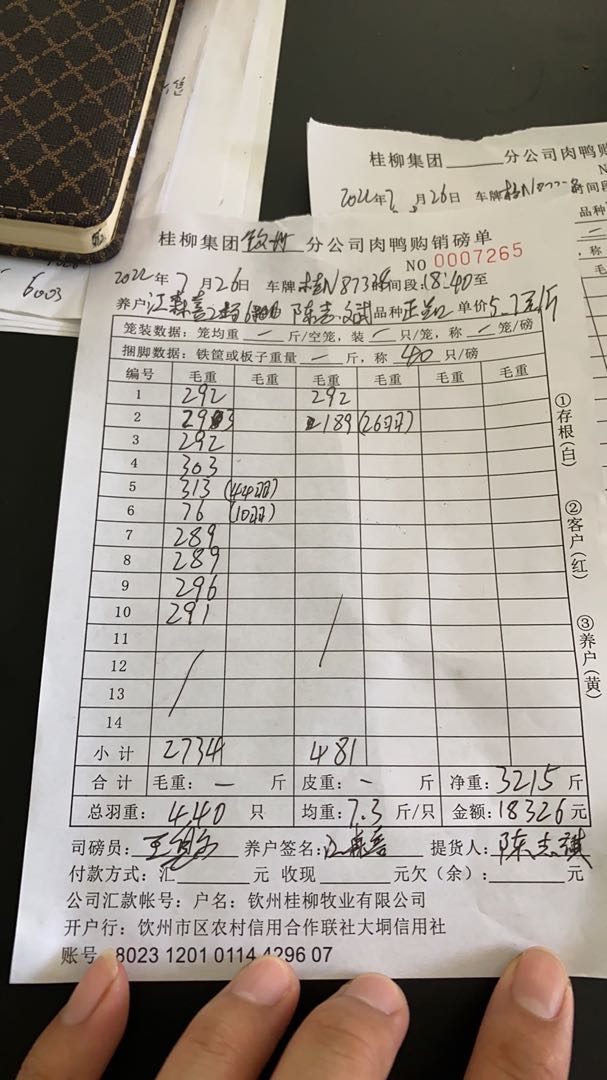 6003
桂柳集团 分公司肉鸭购
2022年7月26日 车牌 时间段
品种
桂柳集团 钦州 分公司肉鸭购销磅单
NO 0007265
2022年7月26日 车牌:桂N87334 时间段:18:40至
养户 江森喜 陈志 斌 品种 单价5.7元/斤
笼装数据:笼均重 一 斤/空笼,装 一 只/笼,称 一 笼/磅
捆脚数据:铁筐或板子重量 一 斤,称 40 只/磅
编号 毛重 毛重 毛重 毛重 毛重
1 292 292
2 293 189 (26羽)
3 292
4 303
5 313 (44羽)
6 76 (10羽)
7 289
8 289
9 296
10 291
11
12
13
14
小计 2734 481
合计 毛重: 一 斤 皮重: 一 斤 净重: 3215 斤
总羽重: 440 只 均重: 7.3 斤/只 金额: 18326 元
司磅员: 养户签名: 江森喜 提货人: 陈志祺
付款方式:汇 元 收现 元欠(余): 元
公司汇款帐号:户名:钦州桂柳牧业有限公司
开户行:钦州市区农村信用合作联社大垌信用社
账号 8023 1201 0114 4296 07
①存根(白)
②客户(红)
③养户(黄)